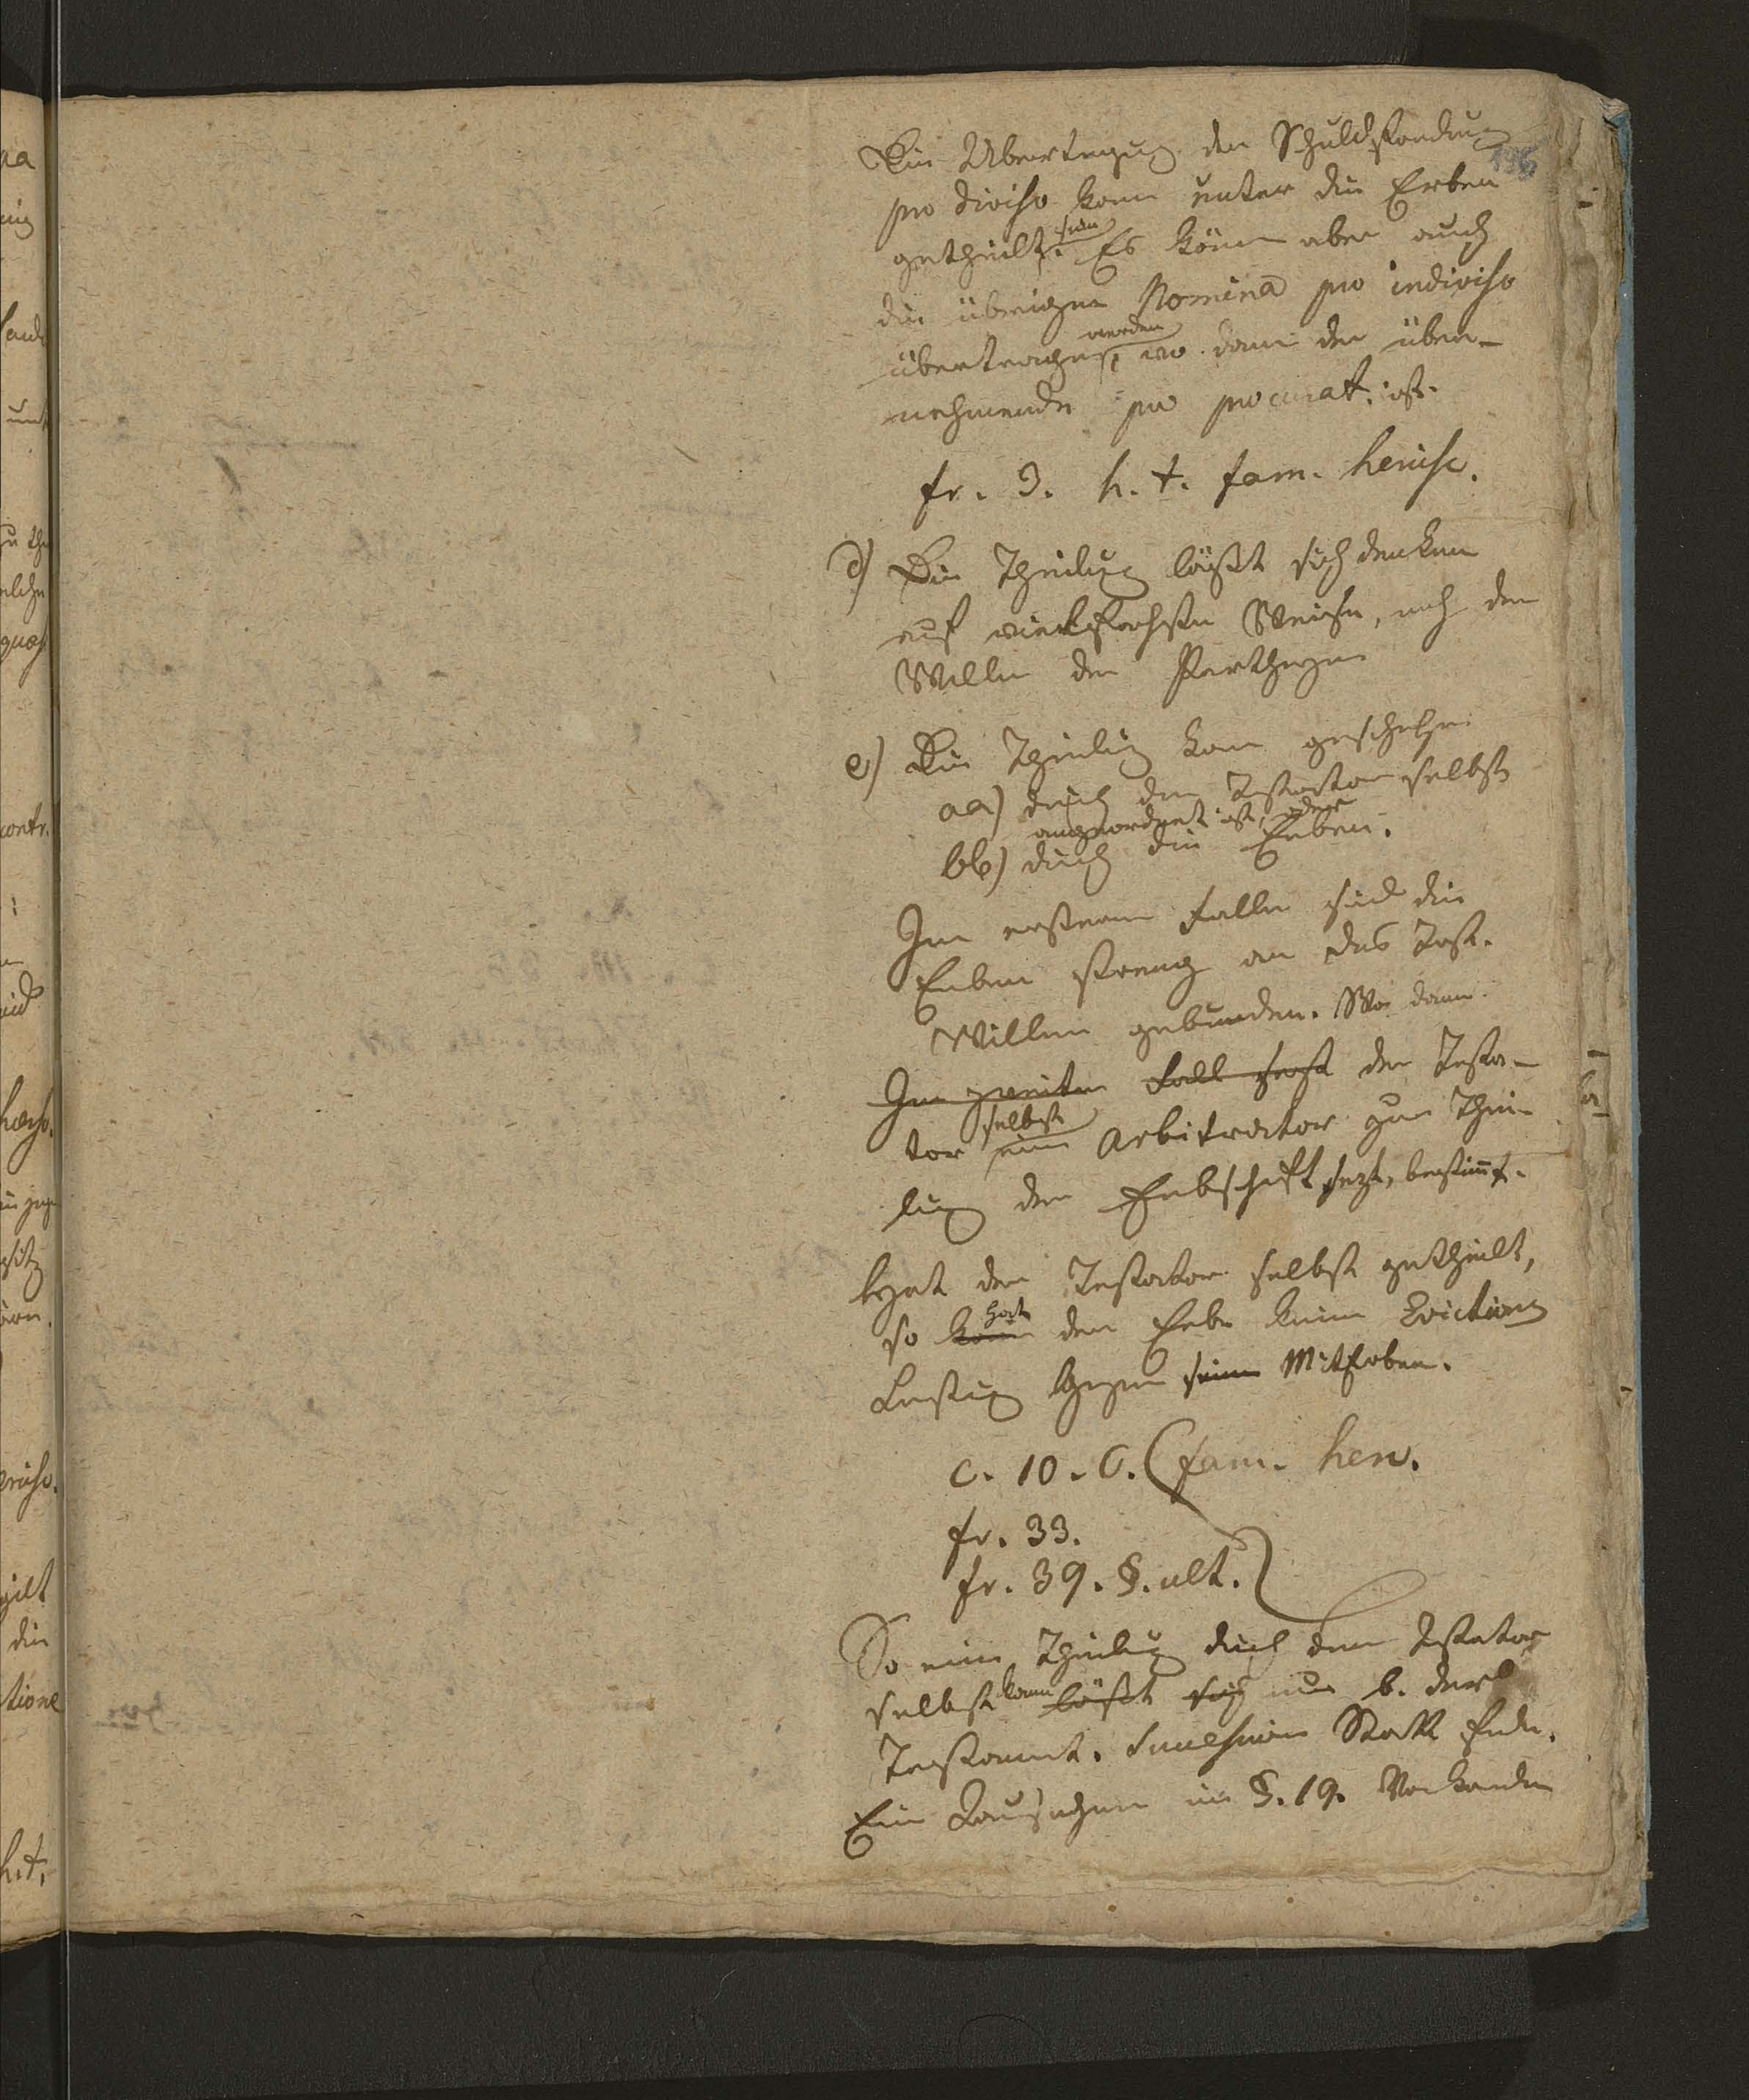 Die Übertragung der Schuldforderung
196
pro diviso kann unter die Erben
getheilt sein. Es könen aber auch
die übrigen Nomina pro indiviso
übertragen werden, wo dann der über-
nehmende pro procurat. ist.
fr. 3. h. t. fam. hercisc.
d) Die Theilung läßt sich denken
auf vielfachste Weise, nach dem
Willen der Partheyen
e) Die Theilung kann geschehen
aa) durch den Testator selbst
angeordnet ist, oder
bb) durch die Erben.
Im ersteren Falle sind die
Erben streng an des Test.
Willen gebunden. Wo dann
Im zweiten Fall der Testa-
tor selbst ein Arbitrator zur Thei-
lung der Erbschaft sezt, bestimt.
Hat der Testator selbst getheilt,
so kann hat der Erbe keine Evictions
Leistung gegen seine Miterben.
c. 10. C. (fam. herc.
fr. 33.
fr. 39. §. ult.
So eine Theilung durch den Testator
selbst kann läßt sich nur b. der
Testament. Succession Statt finden.
Ein im §. 19.